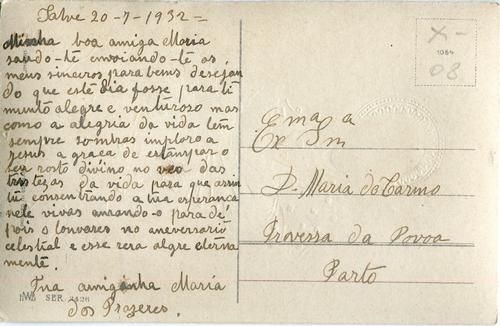 Salve 20-7-1932 =
Minha boa amiga Maria
saudo-te envoiando-te os
meus sinceros parabens desejan
do que este dia fosse para ti
munto alegre e venturoso mas
como a alegria da vida tem
sempre sombras imploro a
Jesus a graça de estampar o
seu rosto divino no veo das
tristezas da vida para que assim
tu consentrando a tua esperanca
nele vivas amando-o para de
pois o louvares no aneversario
celestial e esse sera algre eterna
mente.
Tua amiguinha Maria
dos Prazeres.
SER. 2426
X-
1064
08
Ema Sa
Ex Sm
D. Maria do Carmo
Trovessa da Povoa
Porto